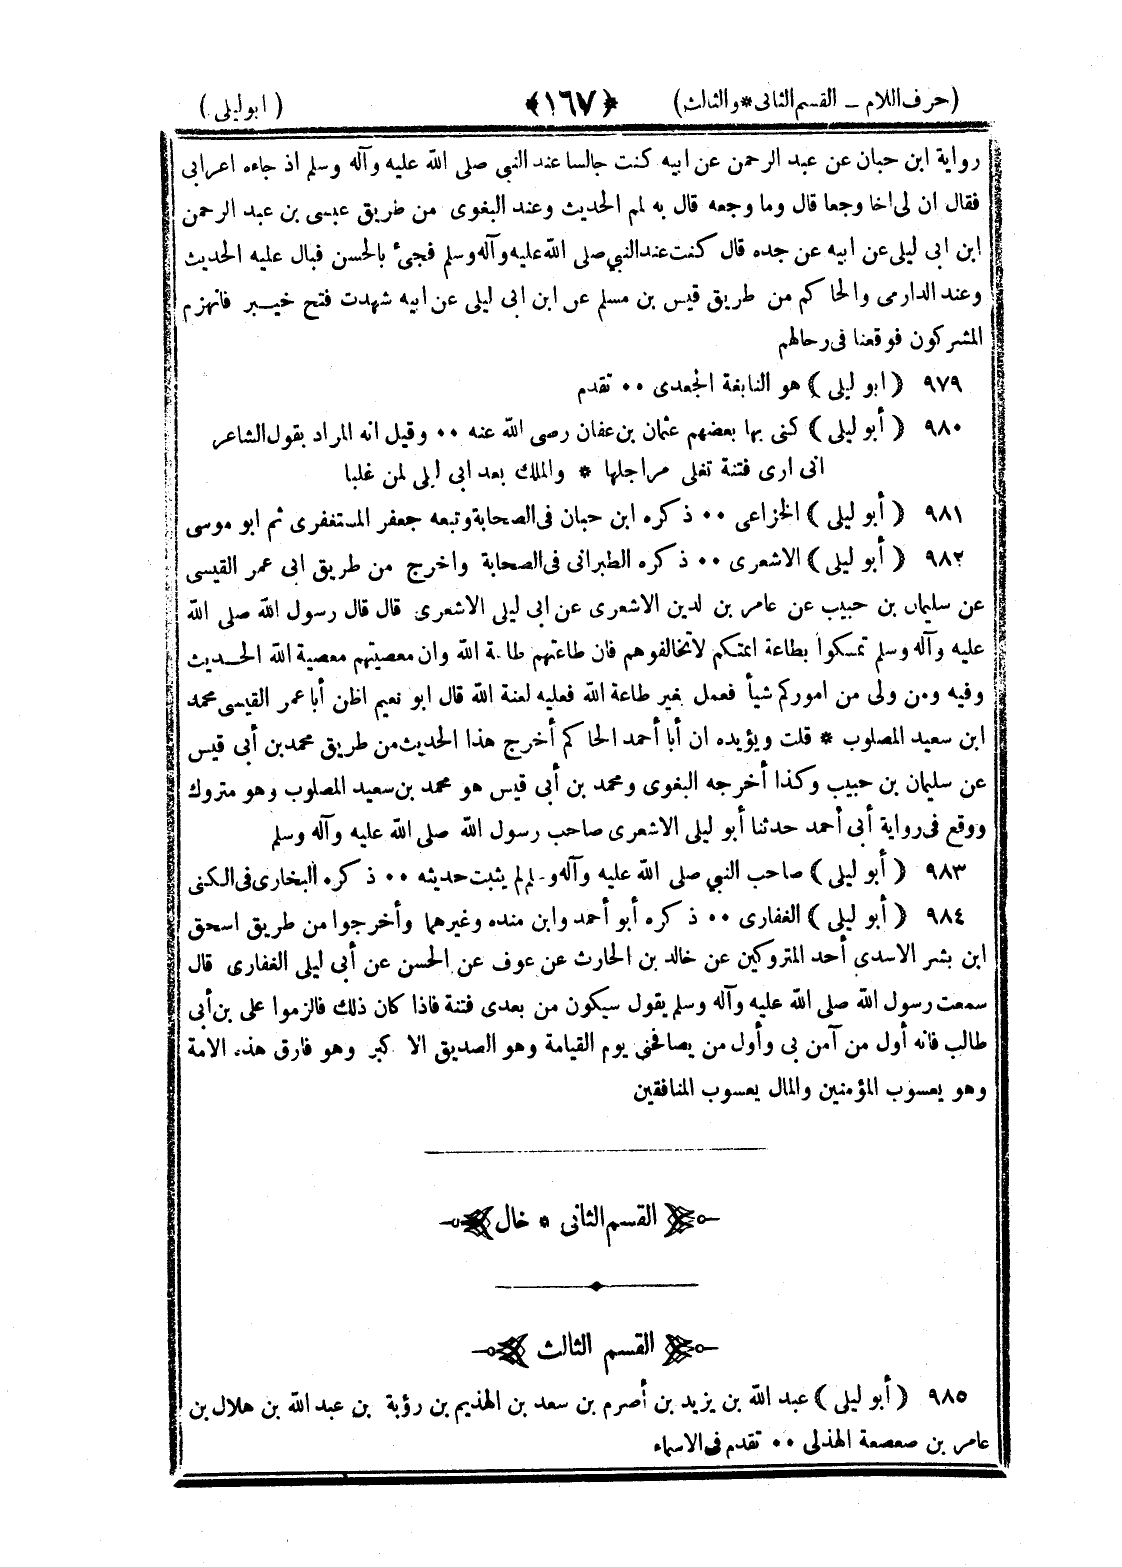 (حرف اللام – القسم الثانى * والثالث) ﴿١٦٧﴾ (ابوليلى)
رواية ابن حبان عن عبد الرحمن عن ابيه كنت جالسا عند النبي صلى الله عليه وآله وسلم اذ جاءه اعرابى
فقال ان لى اخا وجعا قال وما وجعه قال به لمم الحديث وعند البغوى من طريق عيسى بن عبد الرحمن
ابن ابى ليلى عن ابيه عن جده قال كنت عند النبي صلى الله عليه وآله وسلم فجئ بالحسن فبال عليه الحديث
وعند الدارمى والحاكم من طريق قيس بن مسلم عن ابن ابى ليلى عن ابيه شهدت فتح خيبر فانهزم
المشركون فوقعنا فى رحالهم
٩٧٩ (ابو ليلى) هو النابغة الجعدى ٠٠ تقدم
٩٨٠ (أبو ليلى) كنى بها بعضهم عثمان بن عفان رضى الله عنه ٠٠ وقيل انه المراد بقول الشاعر
انى ارى فتنة تغلى مراجلها * والملك بعد ابى ليلى لمن غلبا
٩٨١ (أبو ليلى) الخزاعى ٠٠ ذكره ابن حبان فى الصحابة وتبعه جعفر المستغفرى ثم ابو موسى
٩٨٢ (أبو ليلى) الاشعرى ٠٠ ذكره الطبرانى فى الصحابة واخرج من طريق ابى عمر القيسى
عن سليمان بن حبيب عن عامر بن لدين الاشعرى عن ابى ليلى الاشعرى قال قال رسول الله صلى الله
عليه وآله وسلم تمسكوا بطاعة ايمتكم لاتخالفوهم فان طاعتهم طاعة الله وان معصيتهم معصية الله الحديث
وفيه ومن ولى من اموركم شيأ فعمل بغير طاعة الله فعليه لعنة الله قال ابو نعيم اظن أبا عمر القيسى محمد
ابن سعيد المصلوب * قلت ويؤيده ان أبا أحمد الحاكم أخرج هذا الحديث من طريق محمد بن أبى قيس
عن سليمان بن حبيب وكذا أخرجه البغوى ومحمد بن أبى قيس هو محمد بن سعيد المصلوب وهو متروك
ووقع فى رواية أبى أحمد حدثنا أبو ليلى الاشعرى صاحب رسول الله صلى الله عليه وآله وسلم
٩٨٣ (أبو ليلى) صاحب النبي صلى الله عليه وآله وسلم لم يثبت حديثه ٠٠ ذكره البخارى فى الكنى
٩٨٤ (أبو ليلى) الغفارى ٠٠ ذكره أبو أحمد وابن منده وغيرهما وأخرجوا من طريق اسحق
ابن بشر الاسدى أحد المتروكين عن خالد بن الحارث عن عوف عن الحسن عن أبى ليلى الغفارى قال
سمعت رسول الله صلى الله عليه وآله وسلم يقول سيكون من بعدى فتنة فاذا كان ذلك فالزموا على بن أبى
طالب فانه أول من آمن بى وأول من يصافحنى يوم القيامة وهو الصديق الاكبر وهو فارق هذه الامة
وهو يعسوب المؤمنين والمال يعسوب المنافقين
القسم الثانى * خال
القسم الثالث
٩٨٥ (أبو ليلى) عبد الله بن يزيد بن أصرم بن سعد بن الهذيم بن رؤبة بن عبد الله بن هلال بن
عامر بن صعصعة الهذلى ٠٠ تقدم فى الاسماء